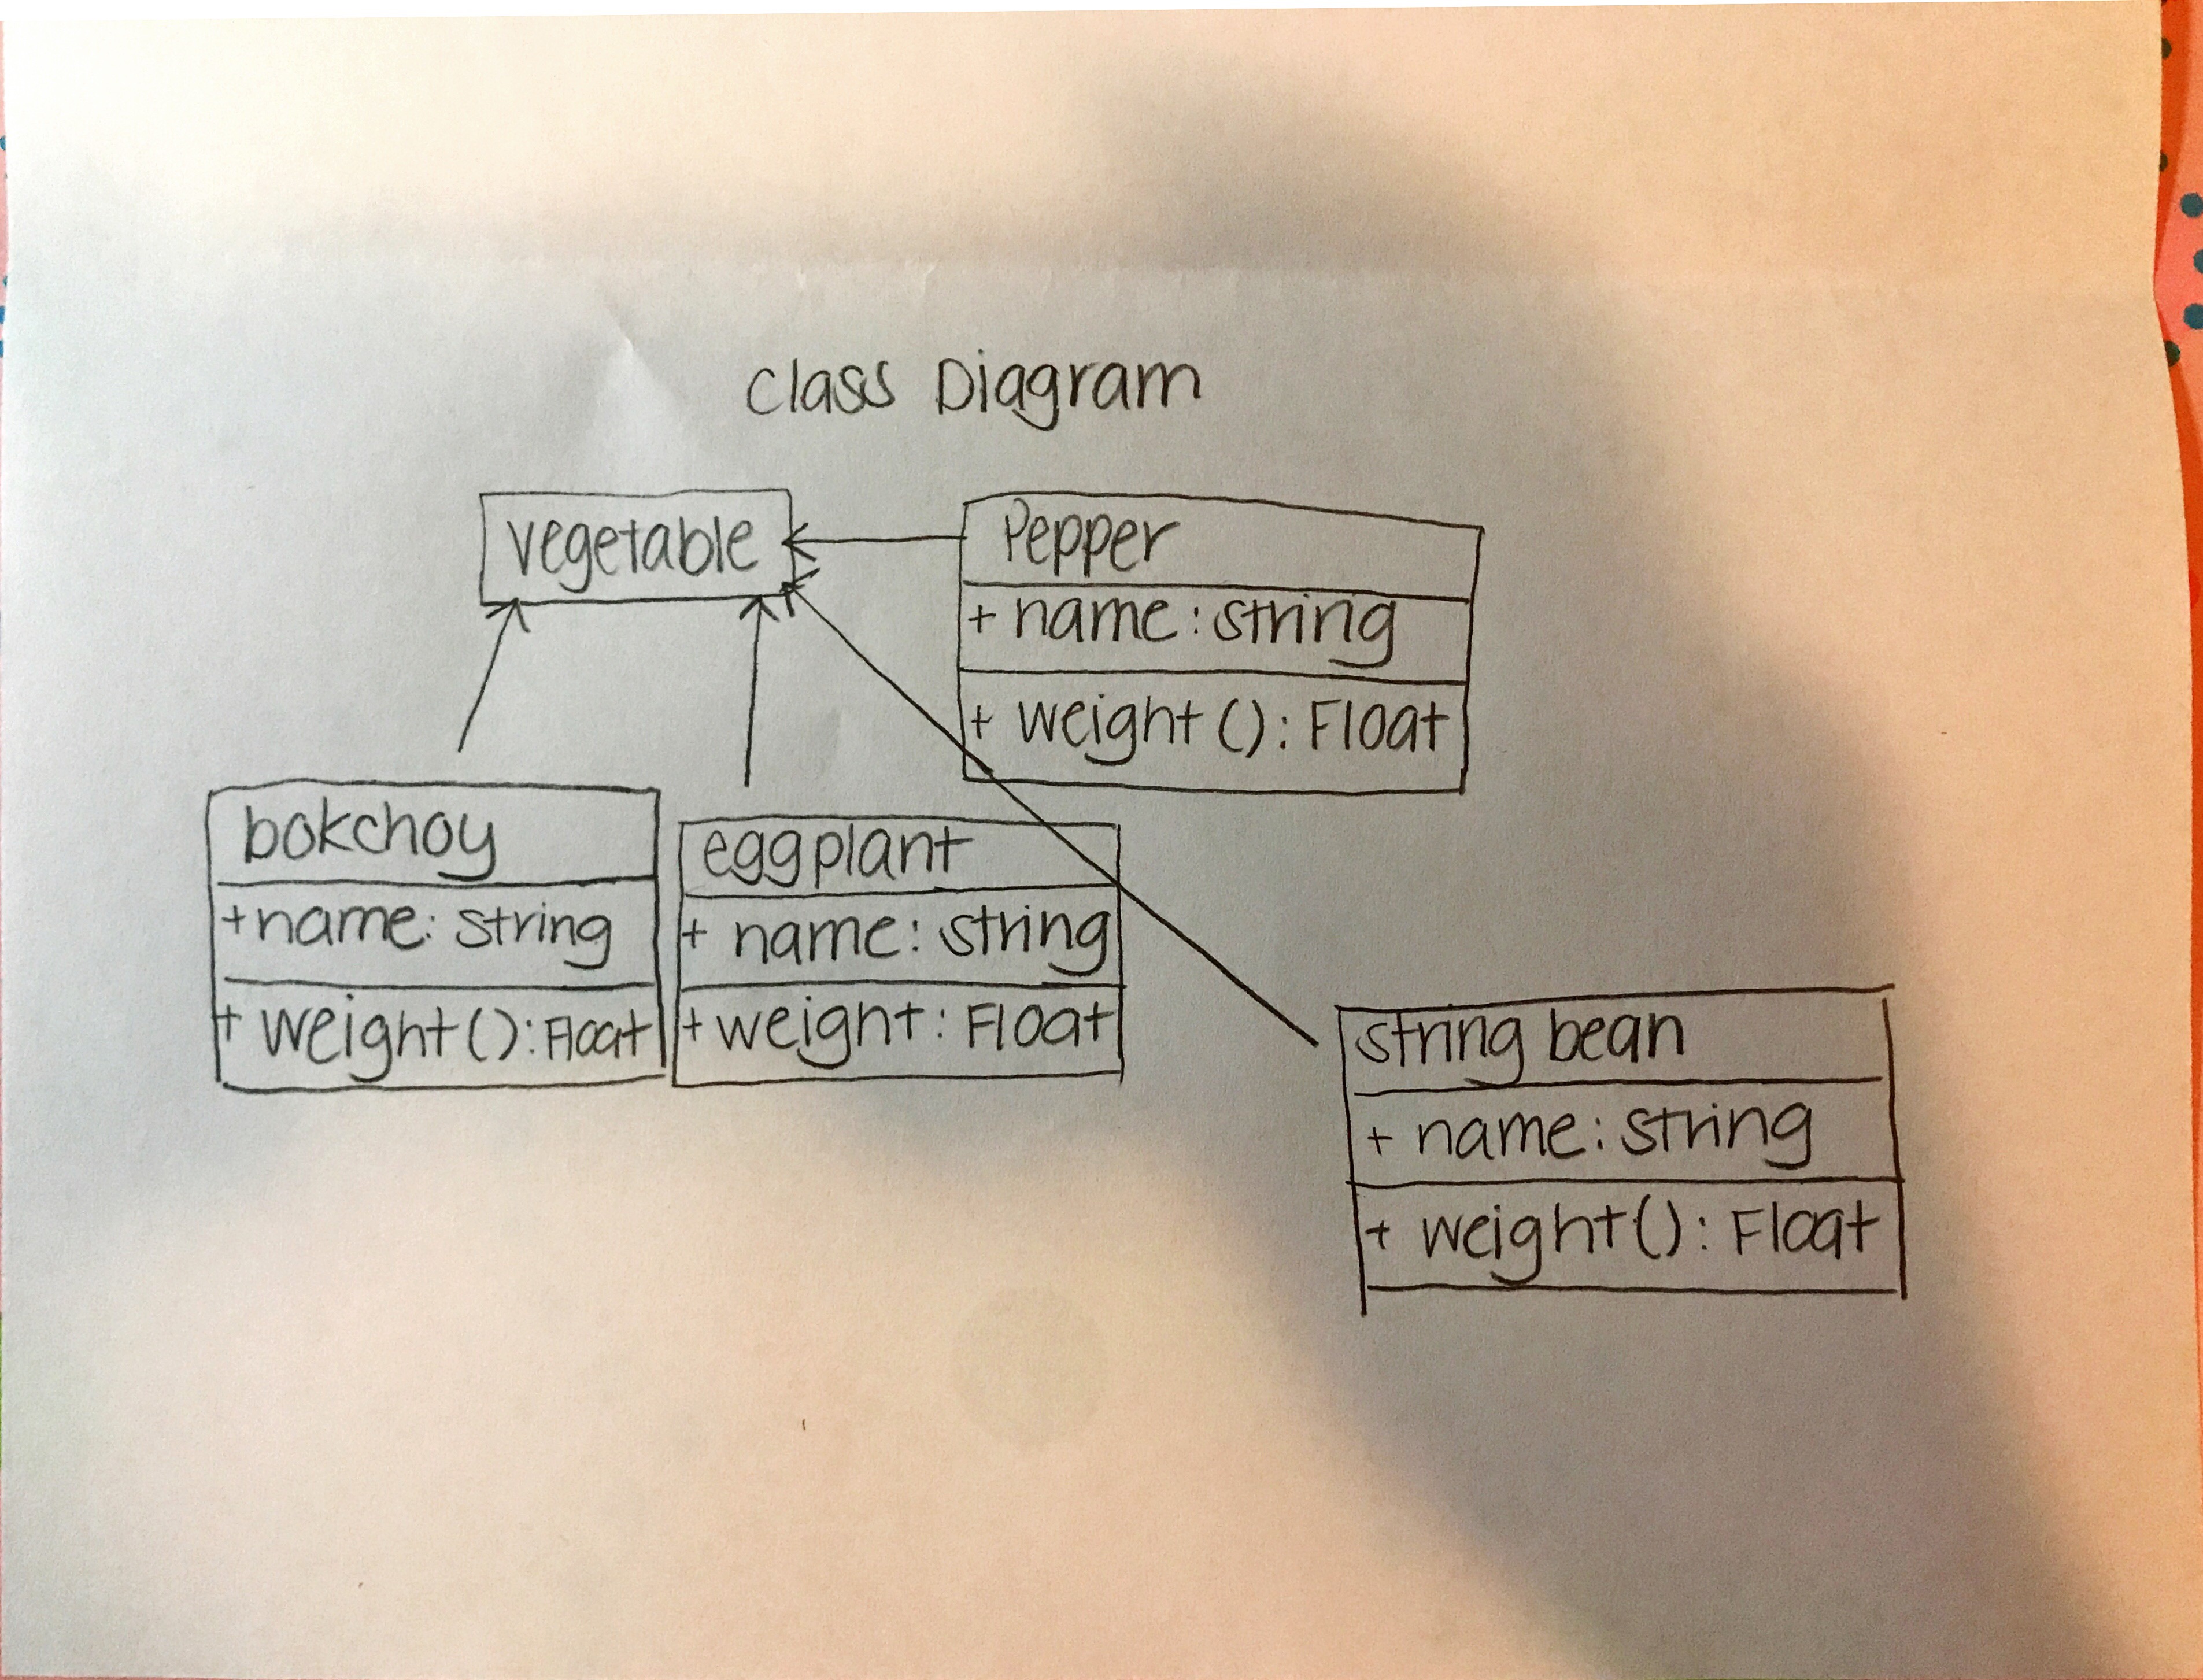 Class Diagram
vegetable
Pepper
+ name: string
+ weight(): Float
bokchoy
+name: string
+ weight(): Float
eggplant
+ name: string
+ weight: Float
string bean
+ name: string
+ weight(): Float